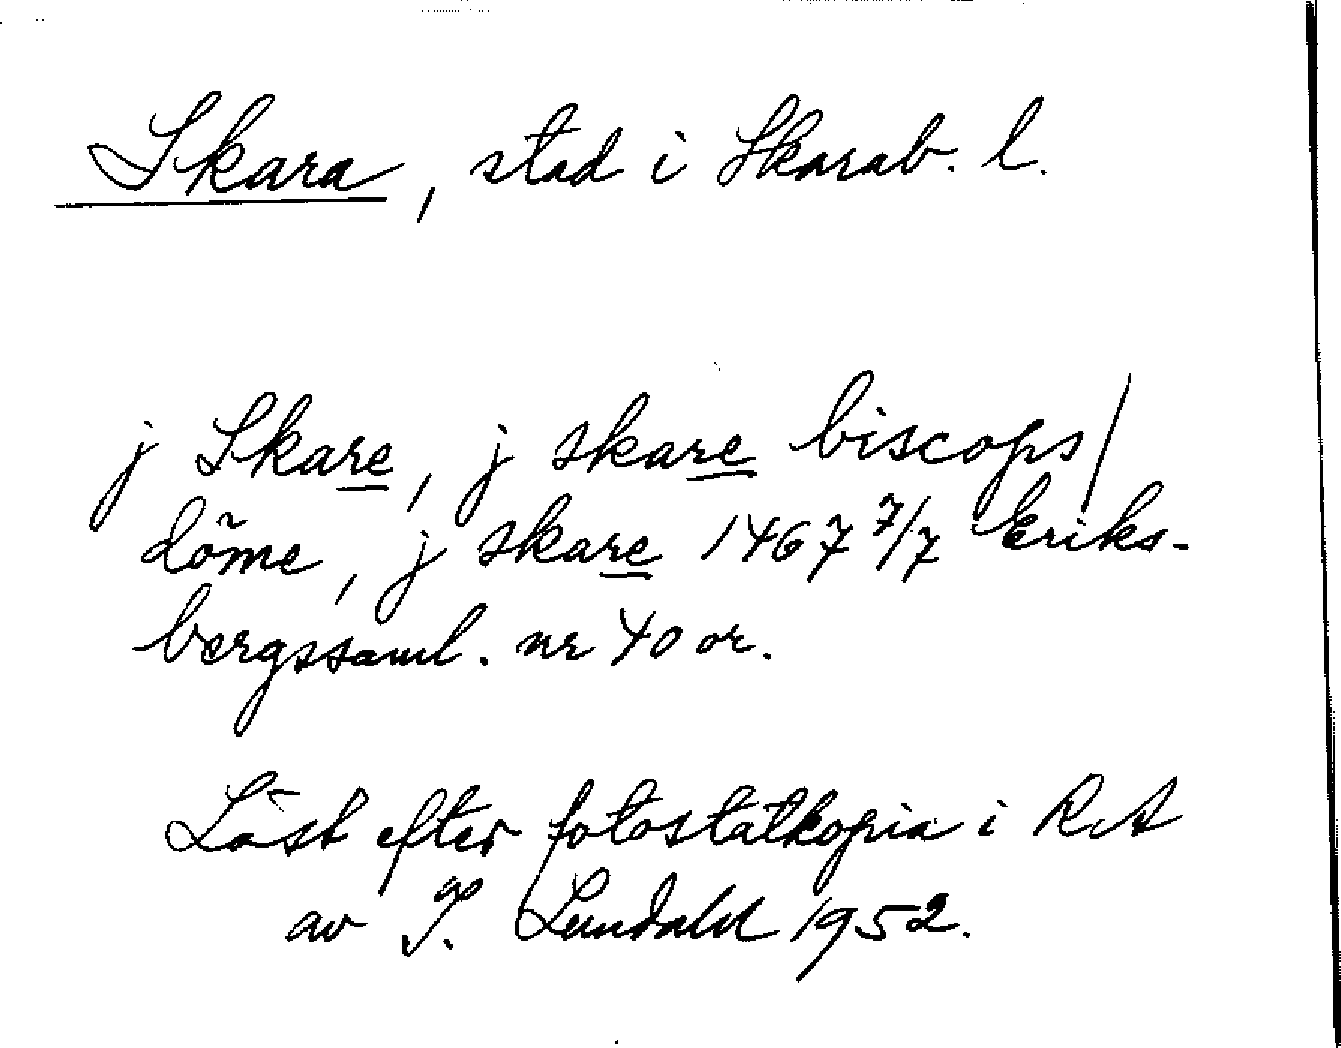 Skara, stad i Skarab. l.
j Skare, j skare biscops/
döme, j skare 1467 7/7 Eriks-
bergssaml. nr 40 or.
Läst efter fotostatkopia i RA
av I. Lundahl 1952.